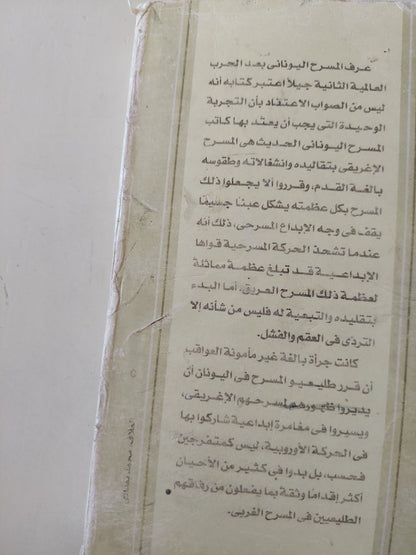 عرف المسرح اليونانى بعد الحرب
العالمية الثانية جيلاً اعتبر كتابه أنه
ليس من الصواب الاعتقاد بأن التجربة
الوحيدة التى يجب أن يعتد بها كاتب
المسرح اليونانى الحديث هى المسرح
الإغريقى بتقاليده وانشغالاته وطقوسه
بالغة القدم، وقرروا ألا يجعلوا ذلك
المسرح بكل عظمته يشكل عبئا جسيمًا
يقف فى وجه الإبداع المسرحى، ذلك أنه
عندما تشحذ الحركة المسرحية قواها
الإبداعية قد تبلغ عظمة مماثلة
لعظمة ذلك المسرح العريق، أما البدء
بتقليده والتبعية له فليس من شأنه إلا
التردى فى العقم والفشل.
كانت جرأة بالغة غير مأمونة العواقب
أن قرر طليعيو المسرح فى اليونان أن
يديروا ظهورهم لمسرحهم الإغريقى،
ويسيروا فى مغامرة إبداعية شاركوا بها
فى الحركة الأوروبية، ليس كمتفرجين
فحسب، بل بدوا فى كثير من الأحيان
أكثر إقدامًا وثقة بما يفعلون من رفاقهم
الطليعيين فى المسرح الغربى.
الغلاف: محمد